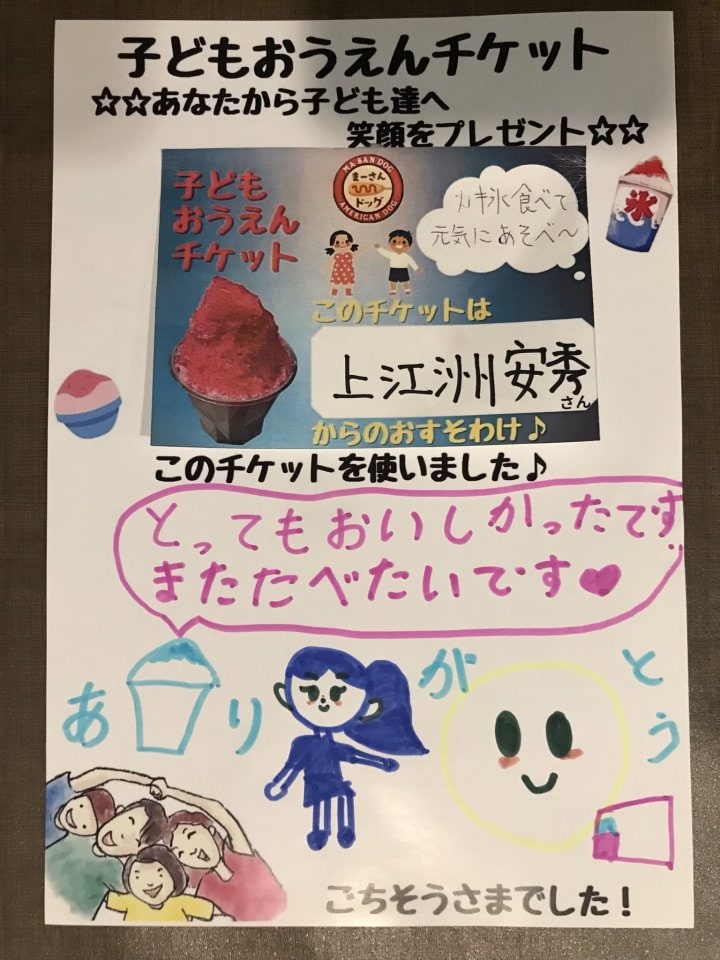 子どもおうえんチケット
☆☆あなたから子ども達へ
笑顔をプレゼント☆☆
子ども
おうえん
チケット
MA-SAN DOG
まーさん
ドッグ
AMERICAN DOG
カキ氷食べて
元気にあそべ〜
氷
このチケットは
上江洲安秀
さん
からのおすそわけ♪
このチケットを使いました♪
とってもおいしかったです。
またたべたいです♥
ありがとう
ごちそうさまでした！